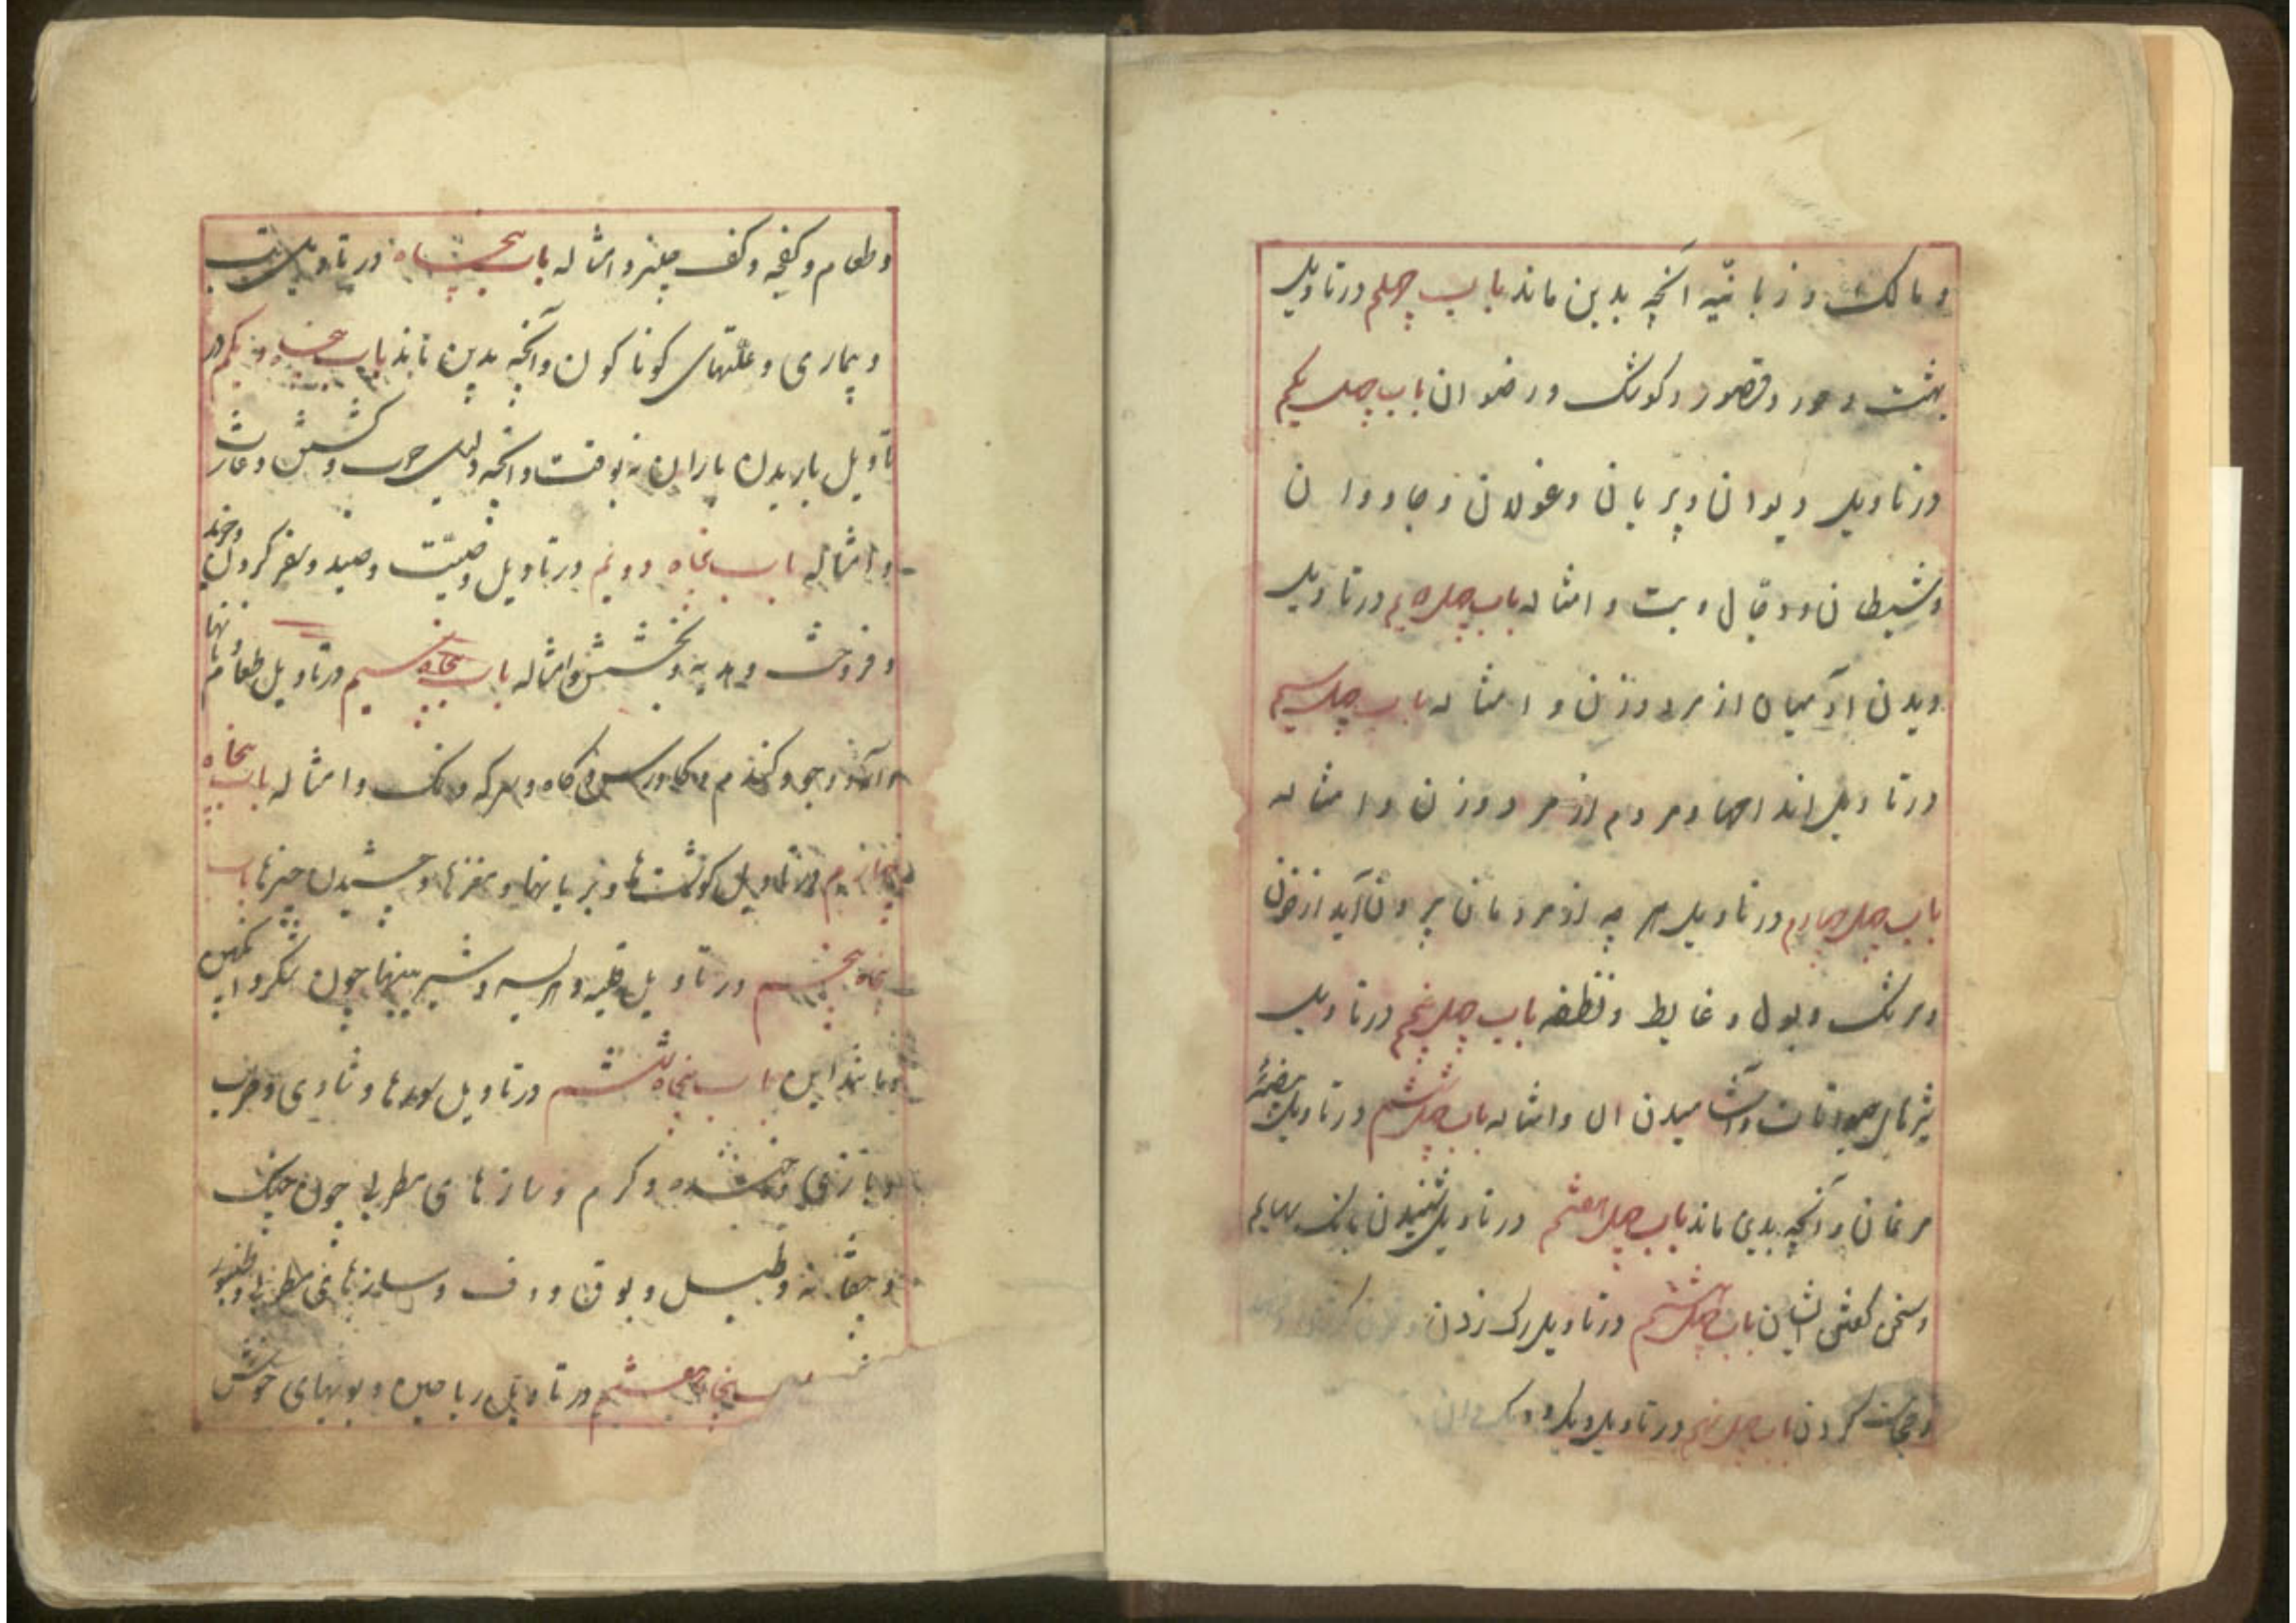 و مالک و زبانیه آنچه بدین ماند باب چهلم در تاویل
بهشت و حور و قصور و کوشک و رضوان باب چهل یکم
در تاویل دیوان و پریان و غولان و جادوان
و شیطان و دجال و بت و امثاله باب چهل دویم در تاویل
دیدن آدمیان از مرد و زن و امثاله باب چهل سیم
در تاویل اندامها و مردم از مرد و زن و امثاله
باب چهل چهارم در تاویل هر چه از مردمان بیرون آید از خون
و سرشک و بول و غایط و نطفه باب چهل پنجم در تاویل
شیرهای حیوانات و آشامیدن ان و امثاله باب چهل ششم در تاویل بیضهٔ
مرغان و آنچه بدین ماند باب چهل هفتم در تاویل شنیدن بانک بهایم
و سخن کفتن ایشان باب چهل هشتم در تاویل رک زدن
و حجامت کردن باب چهل نهم در تاویل دیک
و طعام و کفچه و کف و امثاله باب پنجاه در تاویل تب
و بیماری و علتهای کوناکون و آنچه بدین ماند باب پنجاه و یکم در
تاویل باریدن باران نه بوقت و آنچه دلیل حرب و کشش و غارت
و امثاله باب پنجاه دویم در تاویل وصیت و صید و سفر کردن و خرید
و فروخت و هدیه و بخشش و امثاله باب پنجاه سیم در تاویل طعام و نانها
و آرد و جو و کندم و کاورس و کاه و سرکه و نمک و امثاله باب پنجاه
چهارم در تاویل کوشت‌ها و بریانها و مغزها و چشیدن چیزها باب
پنجاه پنجم در تاویل قلیه و هریسه و شیرینیها چون شکر و انکبین
و مانند این باب پنجاه ششم در تاویل سورها و شادی و طرب
و بازی و کرم و سازهای مطربی چون چنک
و چغانه و طبل و بوق و دف و سازهای مطربی و طنبور
باب پنجاه هفتم در تاویل ریاحین و بویهای خوش